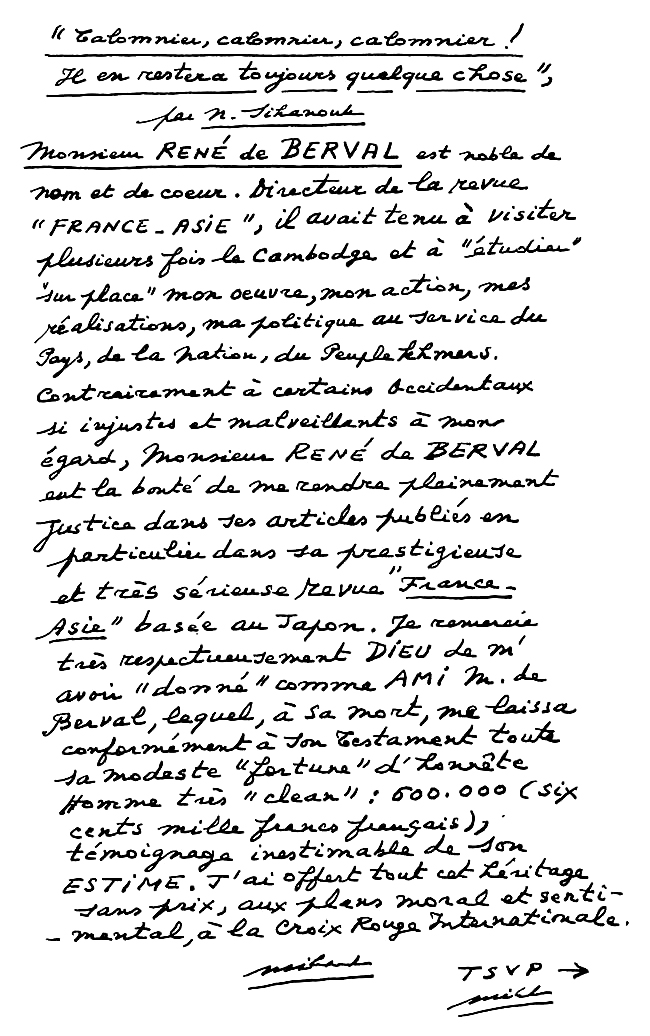 "Calomnier, calomnier, calomnier !
Il en restera toujours quelque chose",
par N. Sihanouk
Monsieur RENÉ de BERVAL est noble de
nom et de coeur. Directeur de la revue
"FRANCE-ASIE", il avait tenu à visiter
plusieurs fois le Cambodge et à "étudier"
"sur place" mon oeuvre, mon action, mes
réalisations, ma politique au service du
Pays, de la Nation, du Peuple khmers.
Contrairement à certains Occidentaux
si injustes et malveillants à mon
égard, Monsieur RENÉ de BERVAL
eut la bonté de me rendre pleinement
Justice dans ses articles publiés en
particulier dans sa prestigieuse
et très sérieuse revue "France-
Asie" basée au Japon. Je remercie
très respectueusement DIEU de m'
avoir "donné" comme AMI M. de
Berval, lequel, à sa mort, me laissa
conformément à son Testament toute
sa modeste "fortune" d'honnête
Homme très "clean" : 600.000 (six
cents mille francs français),
témoignage inestimable de son
ESTIME. J'ai offert tout cet héritage
sans prix, aux plans moral et senti-
-mental, à la Croix Rouge Internationale.
TSVP →